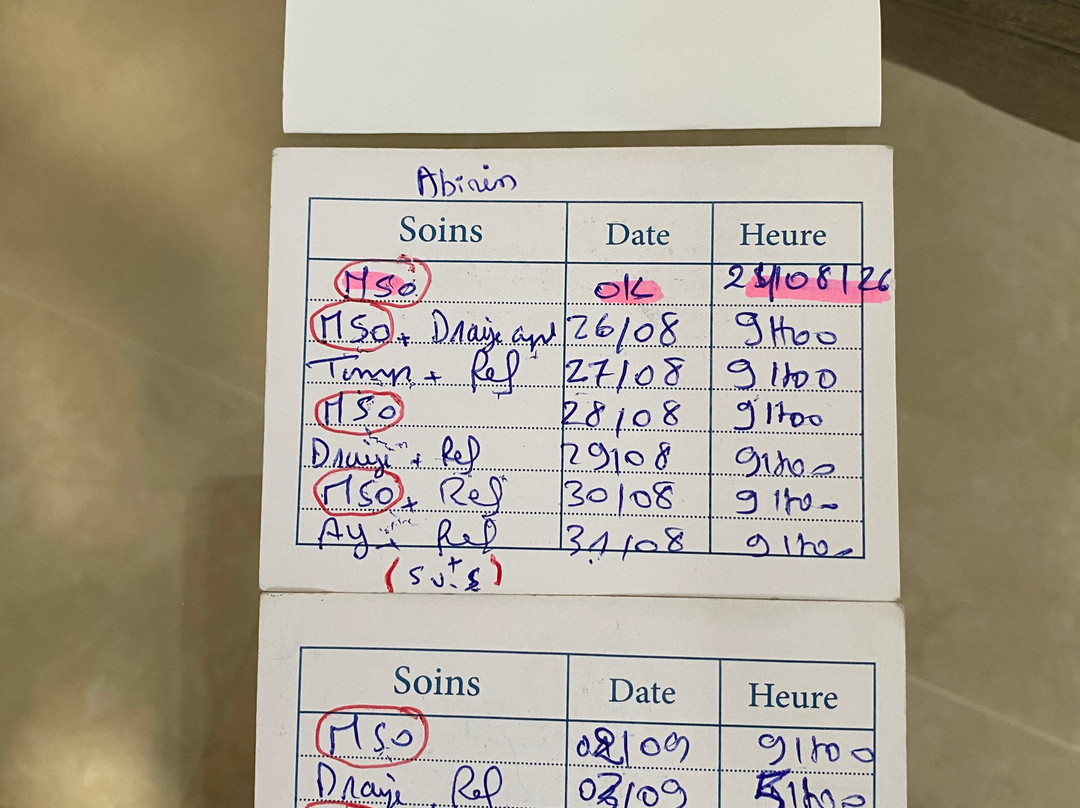 Abirin
Soins Date Heure
MSO OK 25/08/26
MSO + Draije apt 26/08 9H00
Timp + Ref 27/08 9H00
MSO 28/08 9H00
Draije + Ref 29/08 9H00
MSO + Ref 30/08 9H00
Ay + Ref 31/08 9H00
Soins Date Heure
MSO 02/09 9H00
Draije Ref 03/09